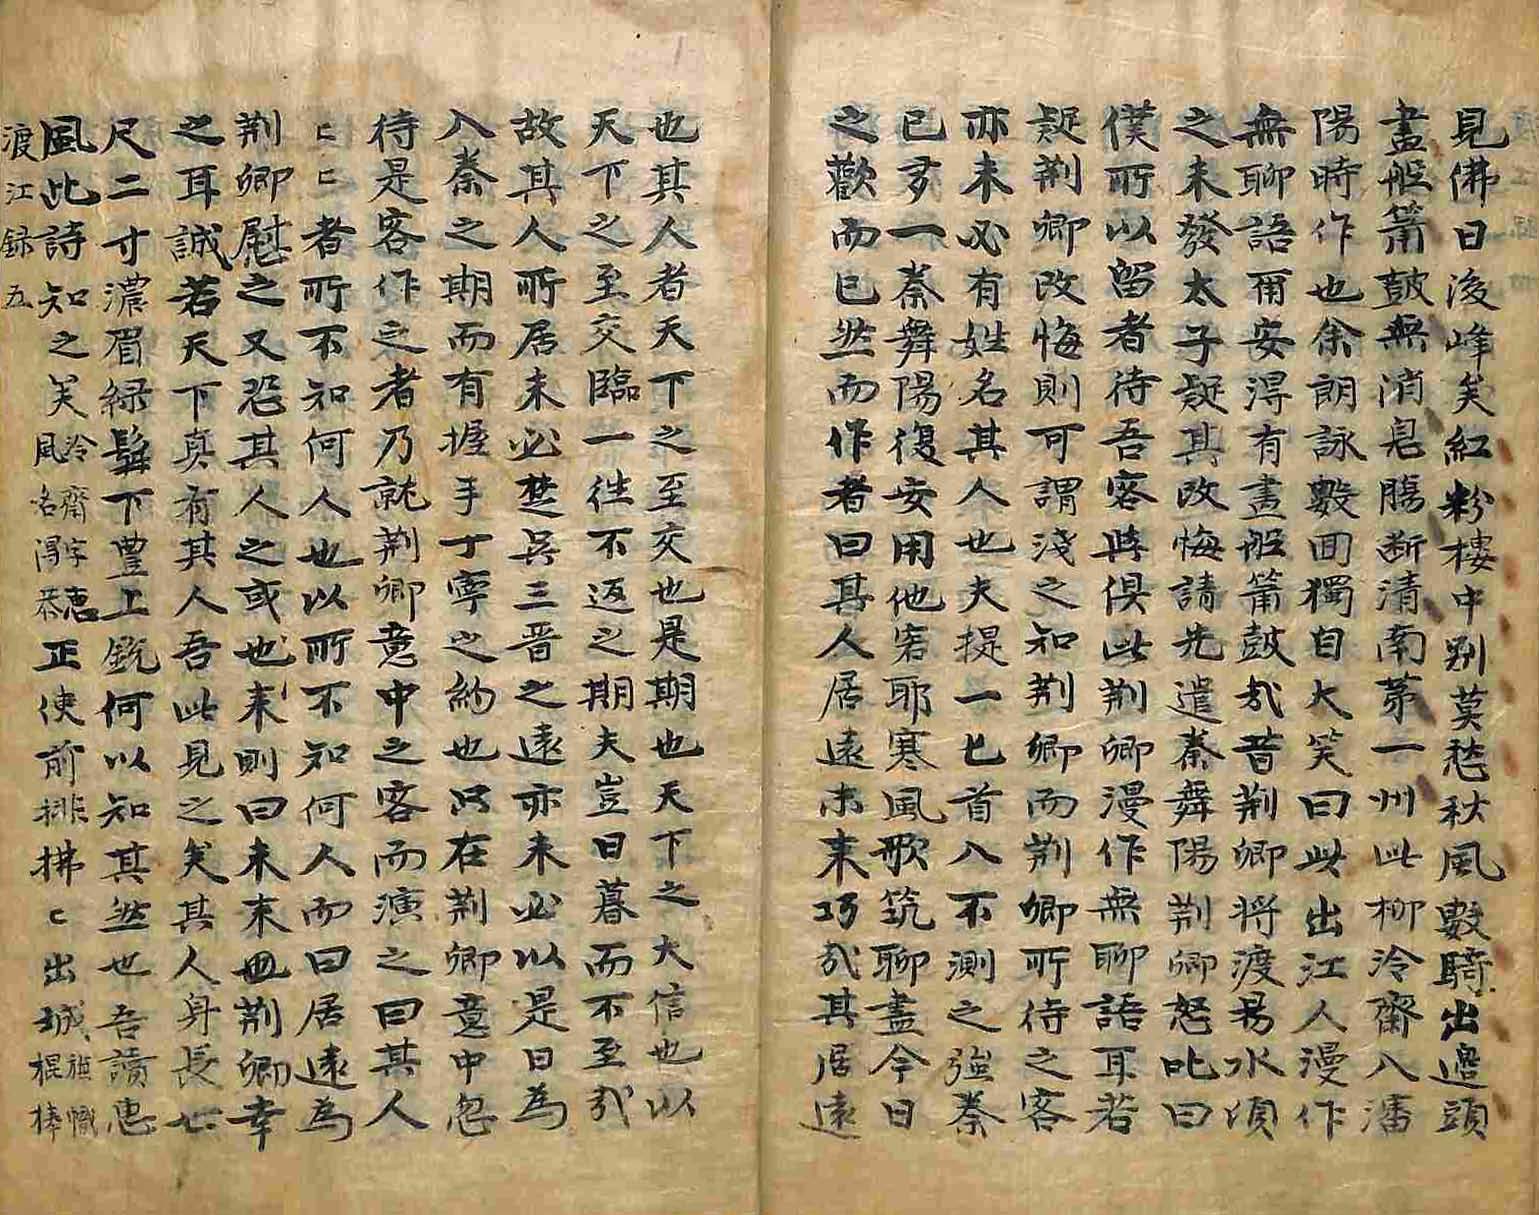 見佛日後峰矣紅粉樓中別莫愁秋風數騎出邊頭
畫舩簫鼓無消息膓断清南第一州此柳泠齋入瀋
陽時作也余朗詠數囬獨自大笑曰此出江人漫作
無聊語甭安淂有畫舩簫鼓㢤昔荆卿將渡易水湏
之未發太子疑其改悔請先遣秦舞陽荆卿怒叱曰
僕所以留者待吾客與俱此荆卿漫作無聊語耳若
疑荆卿改悔則可謂淺之知荆卿而荆卿所待之客
亦未必有姓名其人也夫提一匕首入不測之強秦
已多一秦舞陽復安用他客耶寒風歌筑聊盡今日
之歡而已然而作者曰其人居遠未来巧㢤其居遠
也其人者天下之至交也是期也天下之大信也以
天下之至交臨一徃不返之期夫豈日暮而不至㢤
故其人所居未必楚吳三晋之遠亦未必以是日為
入秦之期而有握手丁寧之約也只在荆卿意中忽
待是客作之者乃就荆卿意中之客而演之曰其人
匕匕者所不知何人也以所不知何人而曰居遠為
荆卿慰之又恐其人之或也来則曰未来也荆卿幸
之耳誠若天下真有其人吾此見之矣其人身長七
尺二寸濃眉緑鬂下豊上銳何以知其然也吾讀惠
風此詩知之矣泠齋字惠風名淂恭正使前排拂匕出城旗幟棍棒
渡江録五